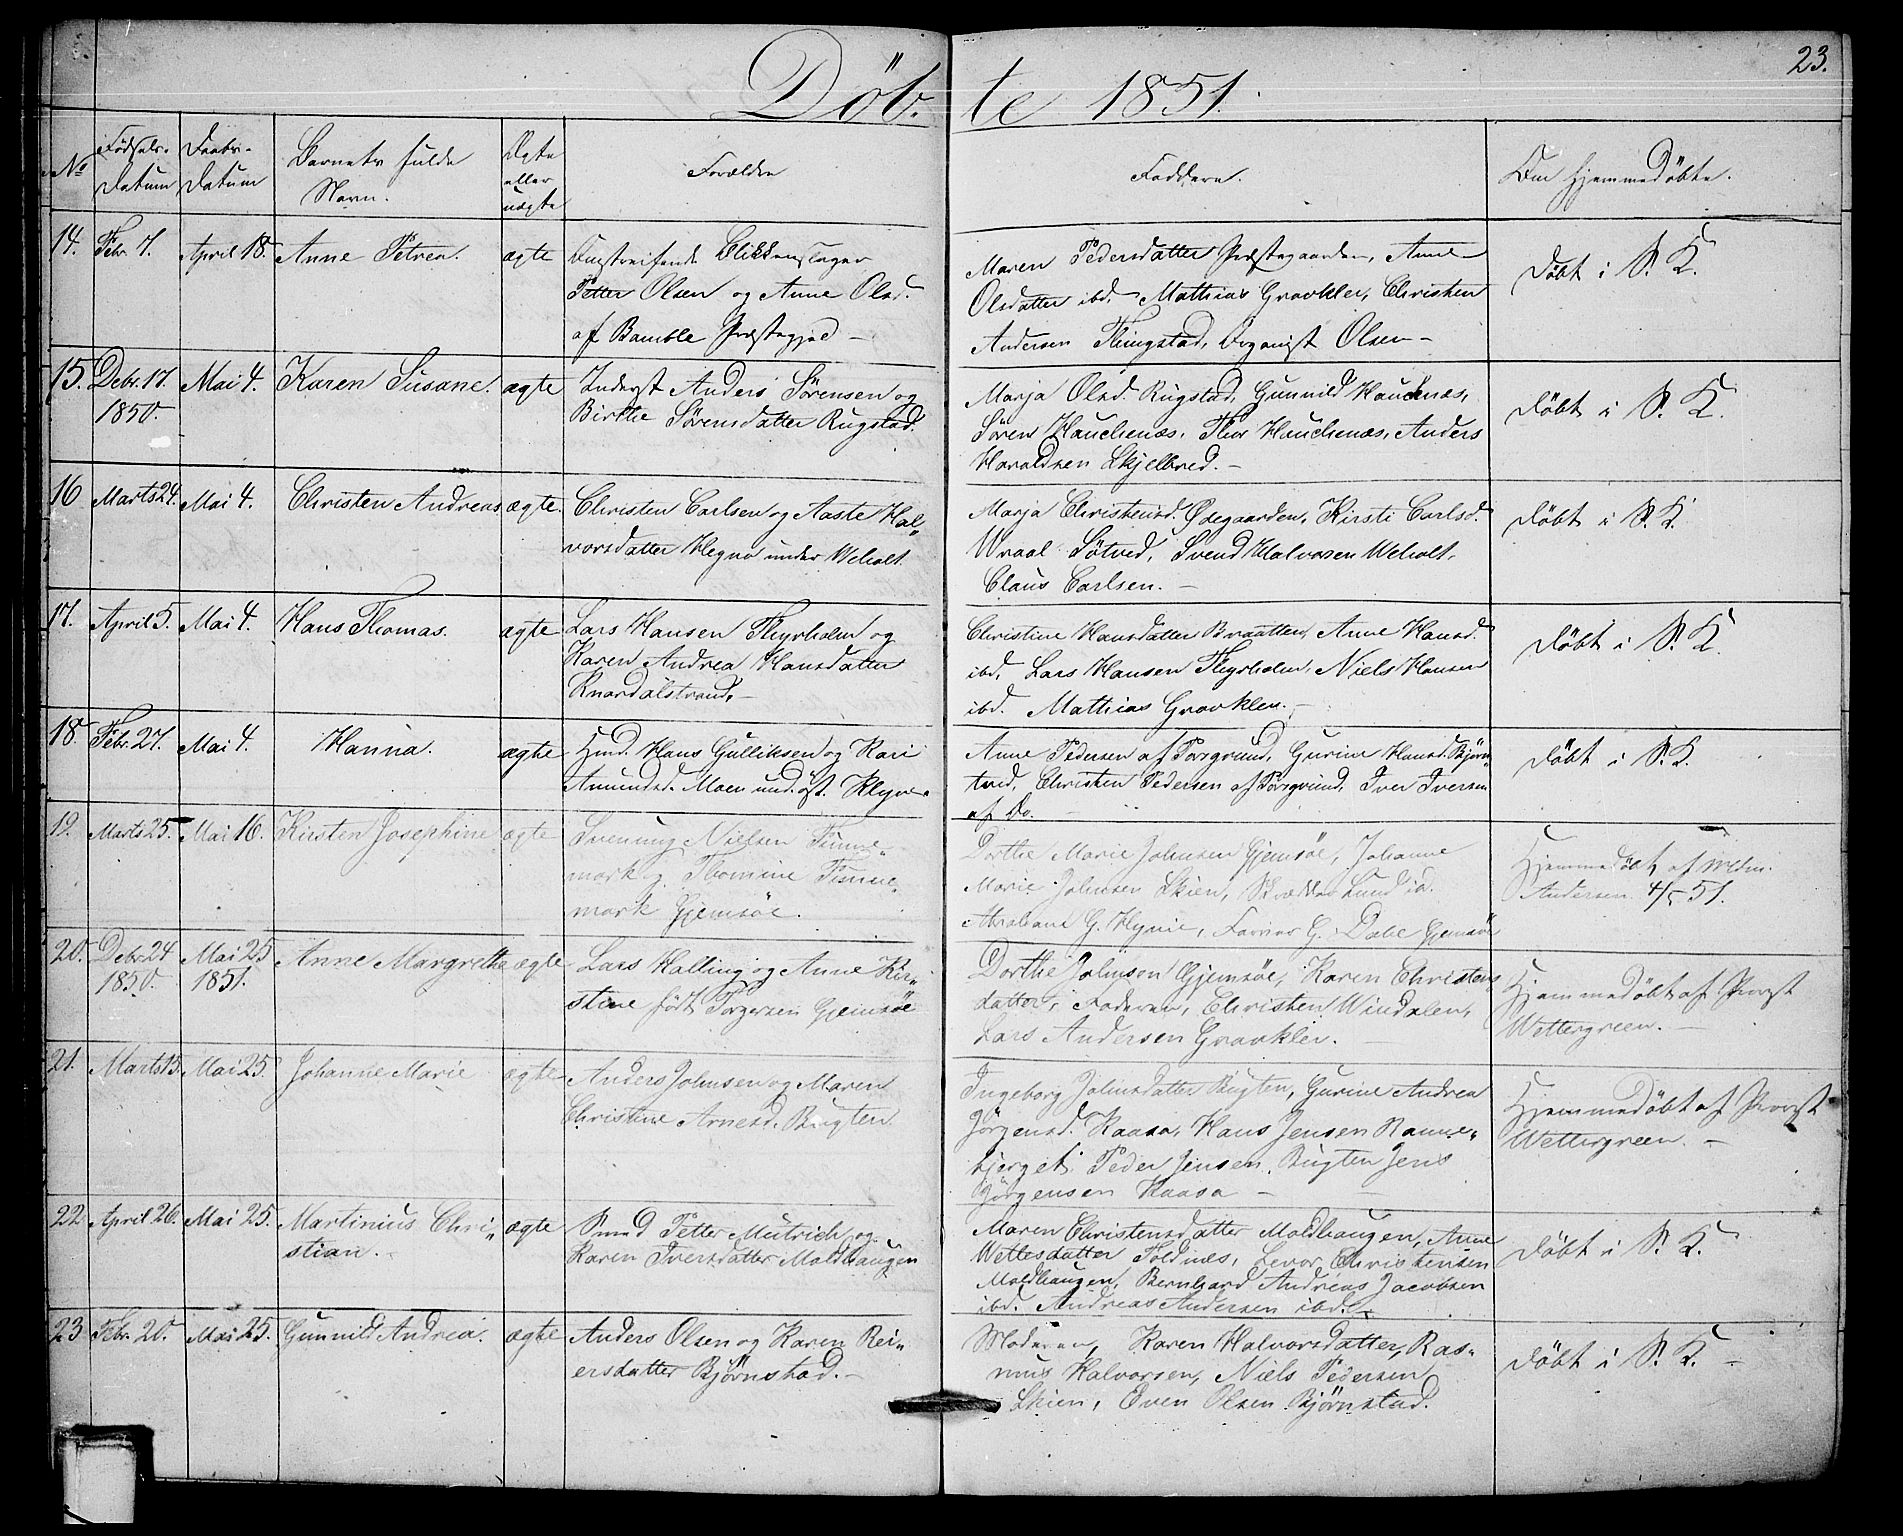 23.
Döb- te 1851.
No Fødsels- Datum Daabs- Datum Barnets fulde Navn. Ægte eller uægte Forældre Faddere. Om hjemmedöbte.
14. Febr. 7. April 18. Anne Petrea. ægte Omstreifende Blikkenslager
Petter Olsen og Anne Olsd.
af Bamble Præstegjeld –
Maren Pedersdatter Præstegaarden, Anne
Olsdatter ibd. Mathias Gravkler, Christen
Andersen Thingstad, Organist Olsen –
döbt i S. K.
15. Debr. 17. 1850. Mai 4. Karen Susane. ægte Inderst Anders Sörensen og
Birthe Sörensdatter Rugstad.
Marja Olsd. Rugstad, Gunnild Haukenæs,
Sören Hauchenæs, Thor Hauchenæs, Anders
Haraldsen Skjelbred. –
döbt i S. K.
16 Marts 24. Mai 4. Christen Andreas ægte. Christen Carlsen og Aaste Hal„
vorsdatter Hegna under Weholt.
Marja Christensd. Ødegaarden, Kirsti Carlsd.
Wraal Sötved, Svend Halvorsen Weholt,
Claus Carlsen. –
döbt i S. K.
17. April 5. Mai 4. Hans Thomas. ægte Lars Hansen Thyrholm og
Karen Andrea Hansdatter
Knardalstrand, –
Christine Hansdatter Braatten, Anne Hansd.
ibd, Lars Hansen Thyrholm, Niels Hansen
ibd. Mathias Gravklev. –
döbt i S. K.
18. Febr. 27. Mai 4. Hanna. ægte Hmd. Hans Gulliksen og Kari
Amundsd. Moen und. öst. Klyve.
Anne Pedersen af Porsgrund, Gurine Hansd. Björn„
tvd, Christen Pedersen af Porsgrund, Iver Iversen
af Do. –
döbt i S. K.
19. Marts 25. Mai 16. Kirsten Josephine ægte Svenung Nielsen Finne„
mark og Thomine Finne„
mark Gjemsöe.
Dorthe Marie Johnsen Gjemsöe, Johanne
Marie Johnsen Skien, Skrædder Lund ibd.
Abraham G. Hynie, Farver G. Dabe Gjemsöe
Hjemmedöbt af Mdm.
Andersen 4/5 51.
20. Debr 24 1850. Mai 25 1851. Anne Margrethe ægte Lars Halling og Anne Kir„
stine född Torgersen Gjemsöe
Dorthe Johnson Gjemsöe, Karen Christens
datter, Faderen, Christen Windalen,
Lars Andersen Gravklev. –
Hjemmedöbt af Provst
Wettergreen. –
21. Marts 15. Mai 25. Johanne Marie ægte Anders Johnsen og Maren
Christine Arnesd. Bugten
Ingeborg Johnsdatter Bugten, Gurine Andrea
Jörgensd. Raasa, Hans Jensen Ranne„
bjerget, Peder Jensen, Bugten Jens
Jörgensen Raasa –
Hjemmedöbt af Provst
Wettergreen. –
22. April 26. Mai 25. Martinius Chri„
stian. ægte Smed Petter Mutrich og
Karen Iversdatter Moldhaugen
Maren Christensdatter Moldhaugen, Anne
Wettesdatter Foldnæs, Levor Christensen
Moldhaugen, Bernhard Andreas Jacobsen
ibd. Andreas Andersen ibd. –
döbt i S. K.
23. Febr. 20. Mai 25. Gunnild Andrea. ægte Anders Olsen og Karen Rei„
ersdatter Björnstad. –
Moderen, Karen Halvorsdatter, Ras„
mus Halvorsen, Niels Pedersen
Skien, Even Olsen Björnstad.
döbt i S. K. –